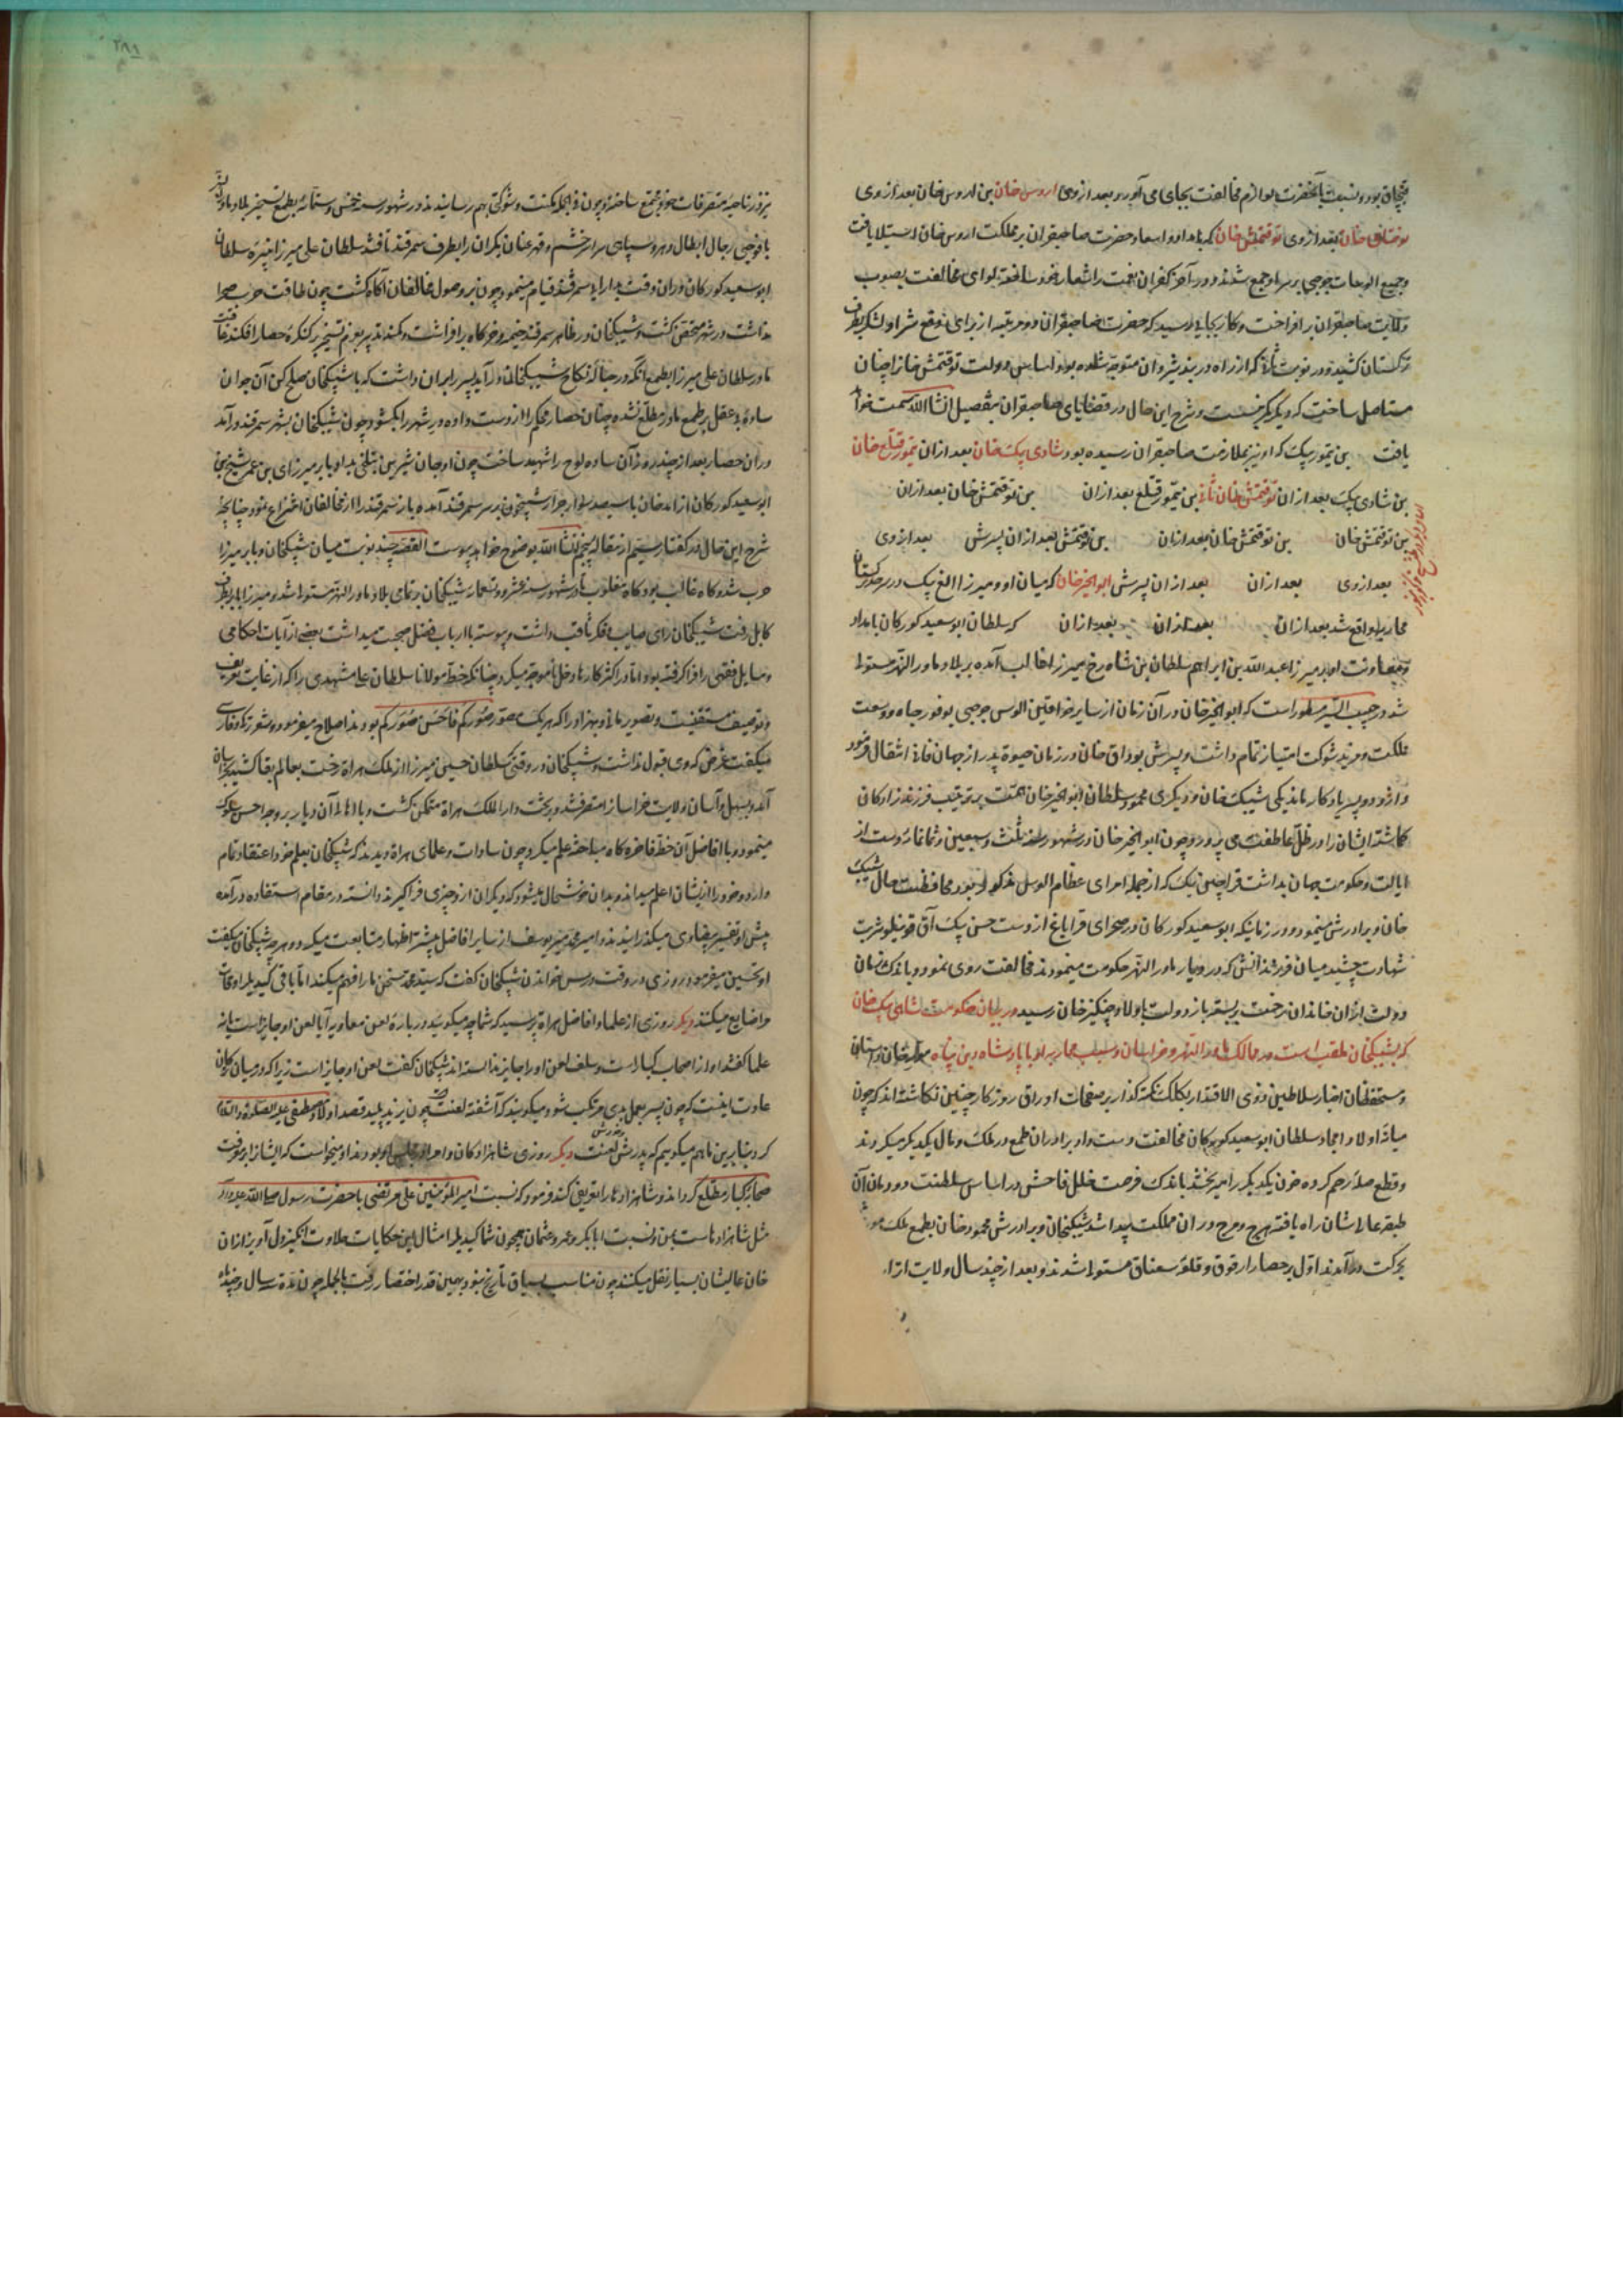 قبچاق بود و نسبت بآنحضرت لوازم مخالفت بجای می آورد و بعد از وی اروس خان بن اروس خان بعد از وی
بعد از وی توقتمش خان که بامداد و اسعاد حضرت صاحبقران بر مملکت اروس خان استیلا یافت
و جمیع الوسات جوجی بر سر او جمع شدند و در آخر کفران نعمت را شعار خود ساخته لوای مخالفت بصوب
ولایت صاحبقران برافراخت و کار بجایی رسید که حضرت صاحبقران دو مرتبه از برای دفع شر او لشکر بطرف
ترکستان کشید و در نوبت ثانی که از راه دربند شیروان متوجه شده بود اساس دولت توقتمش خان را چنان
مستاصل ساخت که دیگر کمر نبست و شرح این حال در قضایای صاحبقران بتفصیل انشا الله سمت خواهد
یافت بن تیمور بیک که او نیز بملازمت صاحبقران رسیده بود شادی بیک خان بعد ازان تیمور قتلغ خان
بن شادی بیک بعد ازان توقتمش خان ثانی بن تیمور قتلغ بعد ازان بن توقتمش خان بعد ازان
بن توقتمش خان بن توقتمش خان بعد ازان بن توقتمش بعد ازان پسرش بعد از وی
بعد از وی بعد ازان بعد ازان پسرش ابوالخیر خان که میان او و میرزا الغ بیک در سرحد ترکستان
محاربه واقع شد بعد ازان بعد ازان بعد ازان که سلطان ابوسعید کورکان بامداد
و معاونت او بر میرزا عبدالله بن ابراهیم سلطان بن شاه رخ میرزا غالب آمده بر بلاد ماورالنهر مستولی
شد در حبیب السیر مسطور است که ابوالخیر خان در آن زمان از سایر خواقین الوس جوجی بوفور جاه و وسعت
مملکت و مزید شوکت امتیاز تمام داشت و پسرش بوداق خان در زمان حیوة پدر از جهان فانی انتقال فرمود
و از و دو پسر یادکار ماند یکی شیبک خان و دیکری محمود سلطان ابوالخیر خان همت بر تربیت فرزندزادکان
کماشته ایشان را در ظل عاطفت می پرورد و چون ابوالخیر خان در شهور سنه ثلث و سبعین و ثمانمائه دست از
ایالت و حکومت جهان بداشت قراچین بیک که از جمله امرای عظام الوس مذکور بود محافظت حال شیبک
خان و برادرش مینمود و در زمانیکه ابوسعید کورکان در صحرای قراباغ از دست حسن بیک آق قوینلو شربت
شهادت چشید میان فرزندانش که در دیار ماورالنهر حکومت مینمودند مخالفت روی نمود و باندک زمان
دولت ازان خاندان رخت بربسته باز دولت باولاد چنکیز خان رسید در بیان حکومت شاهی بیک خان
که بشیبکخان ملقب است در ممالک ماورالنهر و خراسان و سبب محاربه او با پادشاه دین پناه
و مستحفظان اخبار سلاطین ذوی الاقتدار بکلک نکته کذار بر صفحات اوراق روزکار چنین نکاشته اند که چون
میانه اولاد امجاد سلطان ابوسعید کورکان مخالفت دست داد برادران طمع در ملک و مال یکدیکر میکردند
و قطع صله رحم کرده خون یکدیکر را میریختند باندک فرصت خلل فاحش در اساس سلطنت دودمان آن
طبقه عالیشان راه یافته هرج و مرج در ان مملکت پیدا شد شیبکخان و برادرش محمود خان بطمع ملک موروث
بحرکت درآمدند اول بر حصار ارقوق و قلعه سغناق مستولی شدند و بعد از چند سال ولایت اترار
نیز در ناحیه متصرفات خود مجتمع ساخته و چون فی الجمله مکنت و شوکتی بهم رسانیدند در شهور سنه خمس و ستمائه بطمع تسخیر بلاد ماوراالنهر
با فوجی رجال ابطال و هر و سپاهی سراسر خشم و قهر عنان یکران را بطرف سمرقند تافتند سلطان علی میرزا نبیره سلطان
ابوسعید کورکان دران وقت بدارایی سمرقند قیام مینمود چون بر وصول مخالفان آکاه کشت چون طاقت حرب صحرا
نداشت در شهر متحصن کشت و شیبکخان در ظاهر سمرقند خیمه و خرکاه برافراشت و کمند تدبیر بعزم تسخیر بر کنکره حصار افکند
مادر سلطان علی میرزا بطمع آنکه در حباله نکاح شیبکخان درآید پسر را بران داشت که با شیبکخان صلح کن آن جوان
ساده بی عقل بر طمع مادر مطلع نشده چنان حصار محکم را از دست داده در شهر را بکشود و چون شیبکخان بشهر سمرقند درآمد
دران حصار بعد از چند روز آن ساده لوح را شهید ساخت چون او جان شیرین بتلخی بداد بابر میرزای بن عمر شیخ بن
ابوسعید کورکان از اندجان با سیصد سوار جرار شبیخون بر سر سمرقند آمده باز سمرقند را از مخالفان انتزاع نمود چنانچه
شرح این حال در کفتار سیم از مقاله پنجم انشا الله بوضوح خواهد پیوست القصه چند نوبت میان شیبکخان و بابر میرزا
حرب شد و کاه غالب بود و کاه مغلوب تا در شهور سنه عشر و تسعمایه شیبکخان بر تمامی بلاد ماورالنهر مستولی شد و میرزا بابر بطرف
کابل رفت شیبکخان رای صایب و فکر ثاقب داشت و پیوسته با ارباب فضل صحبت میداشت بعضی از آیات احکامی
و مسایل فقهی را فرا کرفته بود اما در اکثر کارها دخل ناموجه میکرد چنانکه خط مولانا سلطان علی مشهدی را که از غایت
و توصیف مستغنیست و تصویر مانی و بهزاد را که هر یک مصور صورکم فاحسن صورکم بودند اصلاح میفرمود و شعر ترکی و فارسی
میکفت غرض که وی قبول نداشت و شیبکخان در وقتی که سلطان حسین میرزا از ملک هراة رخت بعالم بقا کشید
آمد و بسهل و آسان ولایت خراسان را متصرف شد و بر تخت دارالملک هراة متمکن کشت و با اهالی آن دیار بر وجه احسن سلوک
مینمود و با افاضل آن خطه فاخره کاه مباحثه علم میکرد چون سادات و علمای هراة دیدند که شیبکخان بعلم خود اعتقاد تمام
دارد و خود را از ایشان اعلم میداند و بدان خوشحال میشود که دیکران از و چیزی فرا کیرند دانسته در مقام استفاده درآمده
پیش او تفسیر بیضاوی میکذرانیدند و امیر محمد میر یوسف از سایر افاضل بیشتر اظهار متابعت میکرد و هر چه شیبکخان میکفت
او تحسین میفرمود روزی در وقت درس خواندن شیبکخان کفت که سید محمد سخن ما را فهم میکند اما باقی اوقات
ما ضایع میکنند دیکر روزی از علما و افاضل هراة پرسید که شما چه میکوئید در باره لعن معاویه آیا لعن او جایز است یا نه
علما کفتند او از اصحاب کبار است و سلف لعن او را جایز ندانسته اند شیبکخان کفت لعن او جایز است زیرا که در میان ترکان
عادت اینست که چون پسر بعمل بدی مرتکب شود میکویند که آشفته لعنت چون یزید پلید قصد اولاد مصطفی علیه الصلوة والسلام
کرد بنابرین ما هم میکوییم که بر پدرش لعنت دیکر روزی شاهزادکان و امرا در مجلس او بودند او میخواست که ایشان را بر معرفت
صحابه کبار مطلع کرداند و شاهزادها را تعریفی کند فرمود که نسبت امیرالمؤمنین علی مرتضی با حضرت رسول صلی الله علیه وآله
مثل شاهزادهاست بمن و نسبت ابابکر و عمر و عثمان همچون شما امثال این حکایات حلاوت انکیز دل آویز ازان
خان عالیشان بسیار نقل میکنند چون مناسب سیاق تاریخ نبود بهمین قدر اختصار رفت بالجمله چون مدة سال و چند ماه